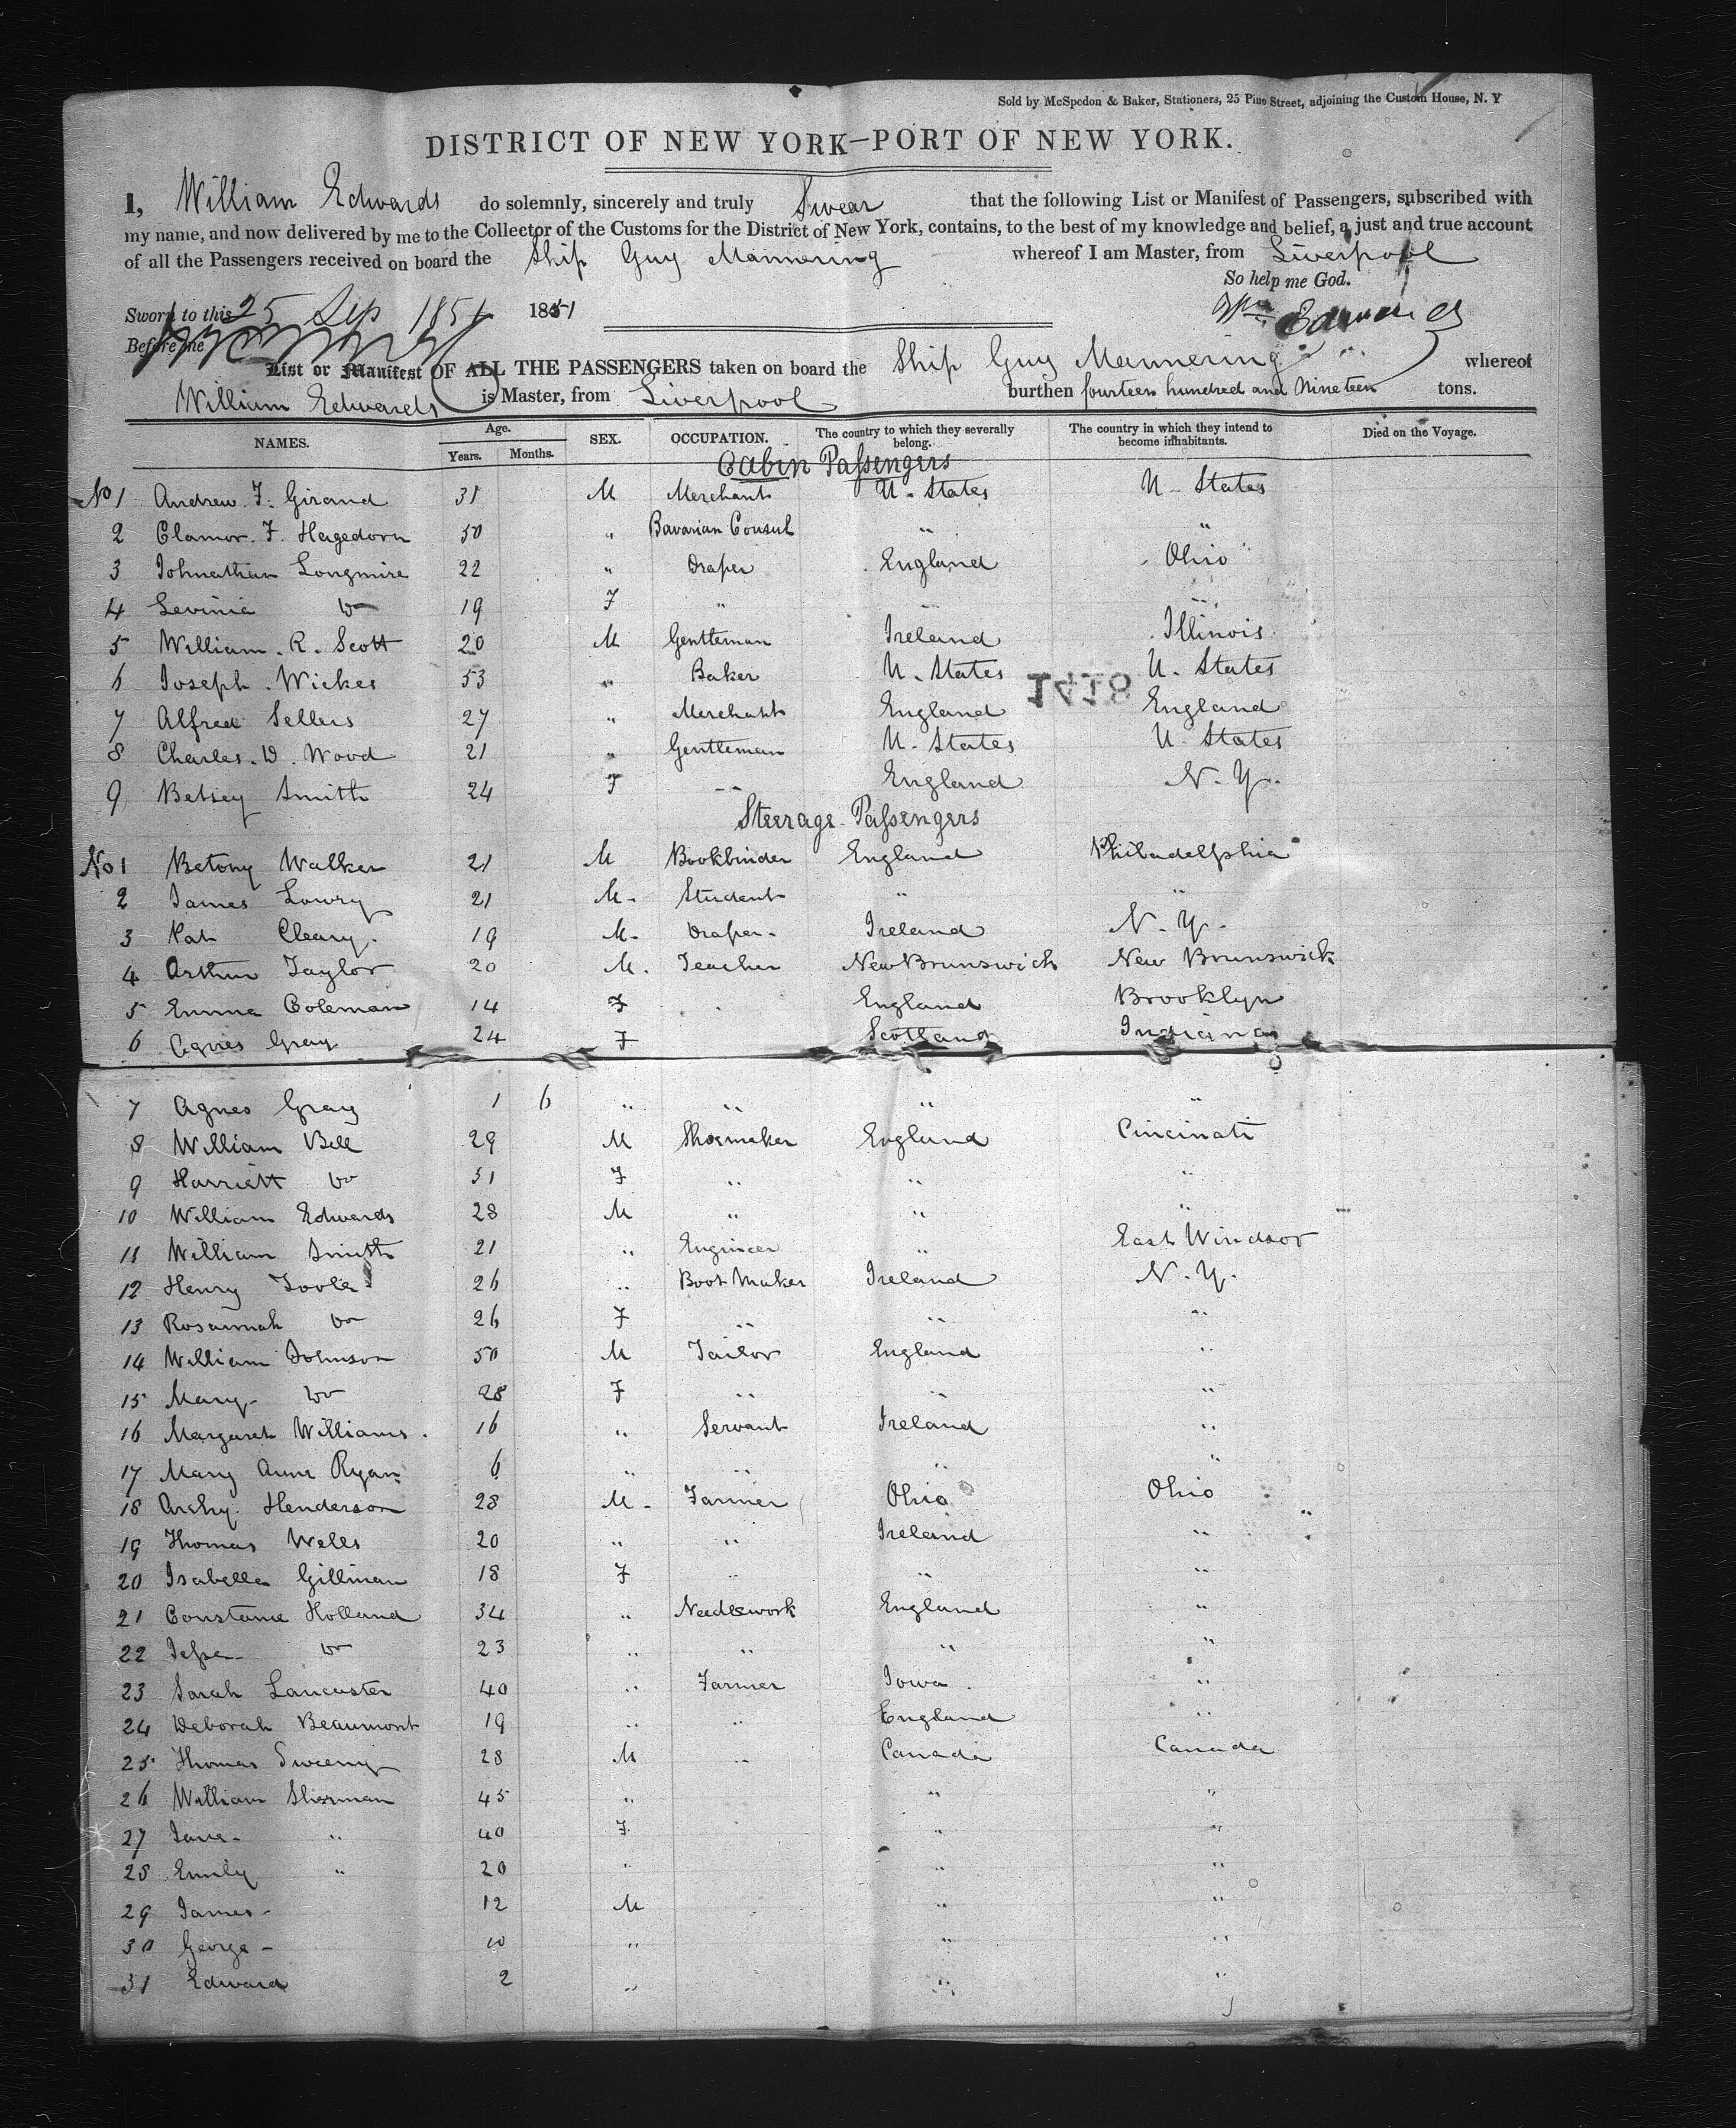 Sold by McSpedon & Baker, Stationers, 25 Pine Street, adjoining the Custom House, N. Y
DISTRICT OF NEW YORK—PORT OF NEW YORK.
I, William Edwards do solemnly, sincerely and truly Swear that the following List or Manifest of Passengers, subscribed with
my name, and now delivered by me to the Collector of the Customs for the District of New York, contains, to the best of my knowledge and belief, a just and true account
of all the Passengers received on board the Ship Guy Mannering whereof I am Master, from Liverpool
So help me God.
Sworn to this 25 Sep 1851 1851
Wm Edwards
Before me
List or Manifest OF ALL THE PASSENGERS taken on board the Ship Guy Mannering whereof
William Edwards is Master, from Liverpool burthen fourteen hundred and Nineteen tons.
NAMES. Age. Years. Months. SEX. OCCUPATION. The country to which they severally belong. The country in which they intend to become inhabitants. Died on the Voyage.
Cabin Passengers
No 1 Andrew F. Girand 31 M Merchant U. States U. States
2 Clamor. F. Hagedorn 50 " Bavarian Consul " "
3 Johnathan Longmire 22 " Draper England Ohio
4 Levinia Do 19 F " " "
5 William. R. Scott 20 M Gentleman Ireland Illinois
6 Joseph. Wickes 53 " Baker U. States U. States
1418
7 Alfred Sellers 27 " Merchant England England
8 Charles. D. Wood 21 " Gentleman U. States U. States
9 Betsey Smith 24 F " England N. Y.
Steerage Passengers
No 1 Betony Walker 21 M Bookbinder England Philadelphia
2 James Lowry 21 M. Student " "
3 Pat Cleary. 19 M. Draper. Ireland N. Y.
4 Arthur Taylor 20 M. Teacher New Brunswick New Brunswick
5 Emma Coleman 14 F England Brooklyn
6 Agnes Gray 24 F Scotland Indiana
7 Agnes Gray 1 6 " " " "
8 William Bell 29 M Shoemaker England Cincinati
9 Harriett Do 31 F " " "
10 William Edwards 28 M " " "
11 William Smith 21 " Engineer " East Windsor
12 Henry Toole 26 " Boot Maker Ireland N. Y.
13 Rosannah Do 26 F " " "
14 William Johnson 50 M Tailor England "
15 Mary Do 28 F " " "
16 Margaret Williams. 16 " Servant Ireland "
17 Mary Anne Ryan 6 " " " "
18 Archy. Henderson 28 M. Farmer Ohio Ohio
19 Thomas Wells 20 " " Ireland "
20 Isabella Gillman 18 F " " "
21 Constance Holland 34 " Needlework England "
22 Jesse Do 23 " " " "
23 Sarah Lancaster 40 " Farmer Iowa. "
24 Deborah Beaumont 19 " " England "
25 Thomas Sweeny 28 M " Canada Canada
26 William Sherman 45 " " "
27 Jane " 40 F " "
28 Emily " 20 " " "
29 James 12 M " "
30 George 10 " " "
31 Edward 2 " " "